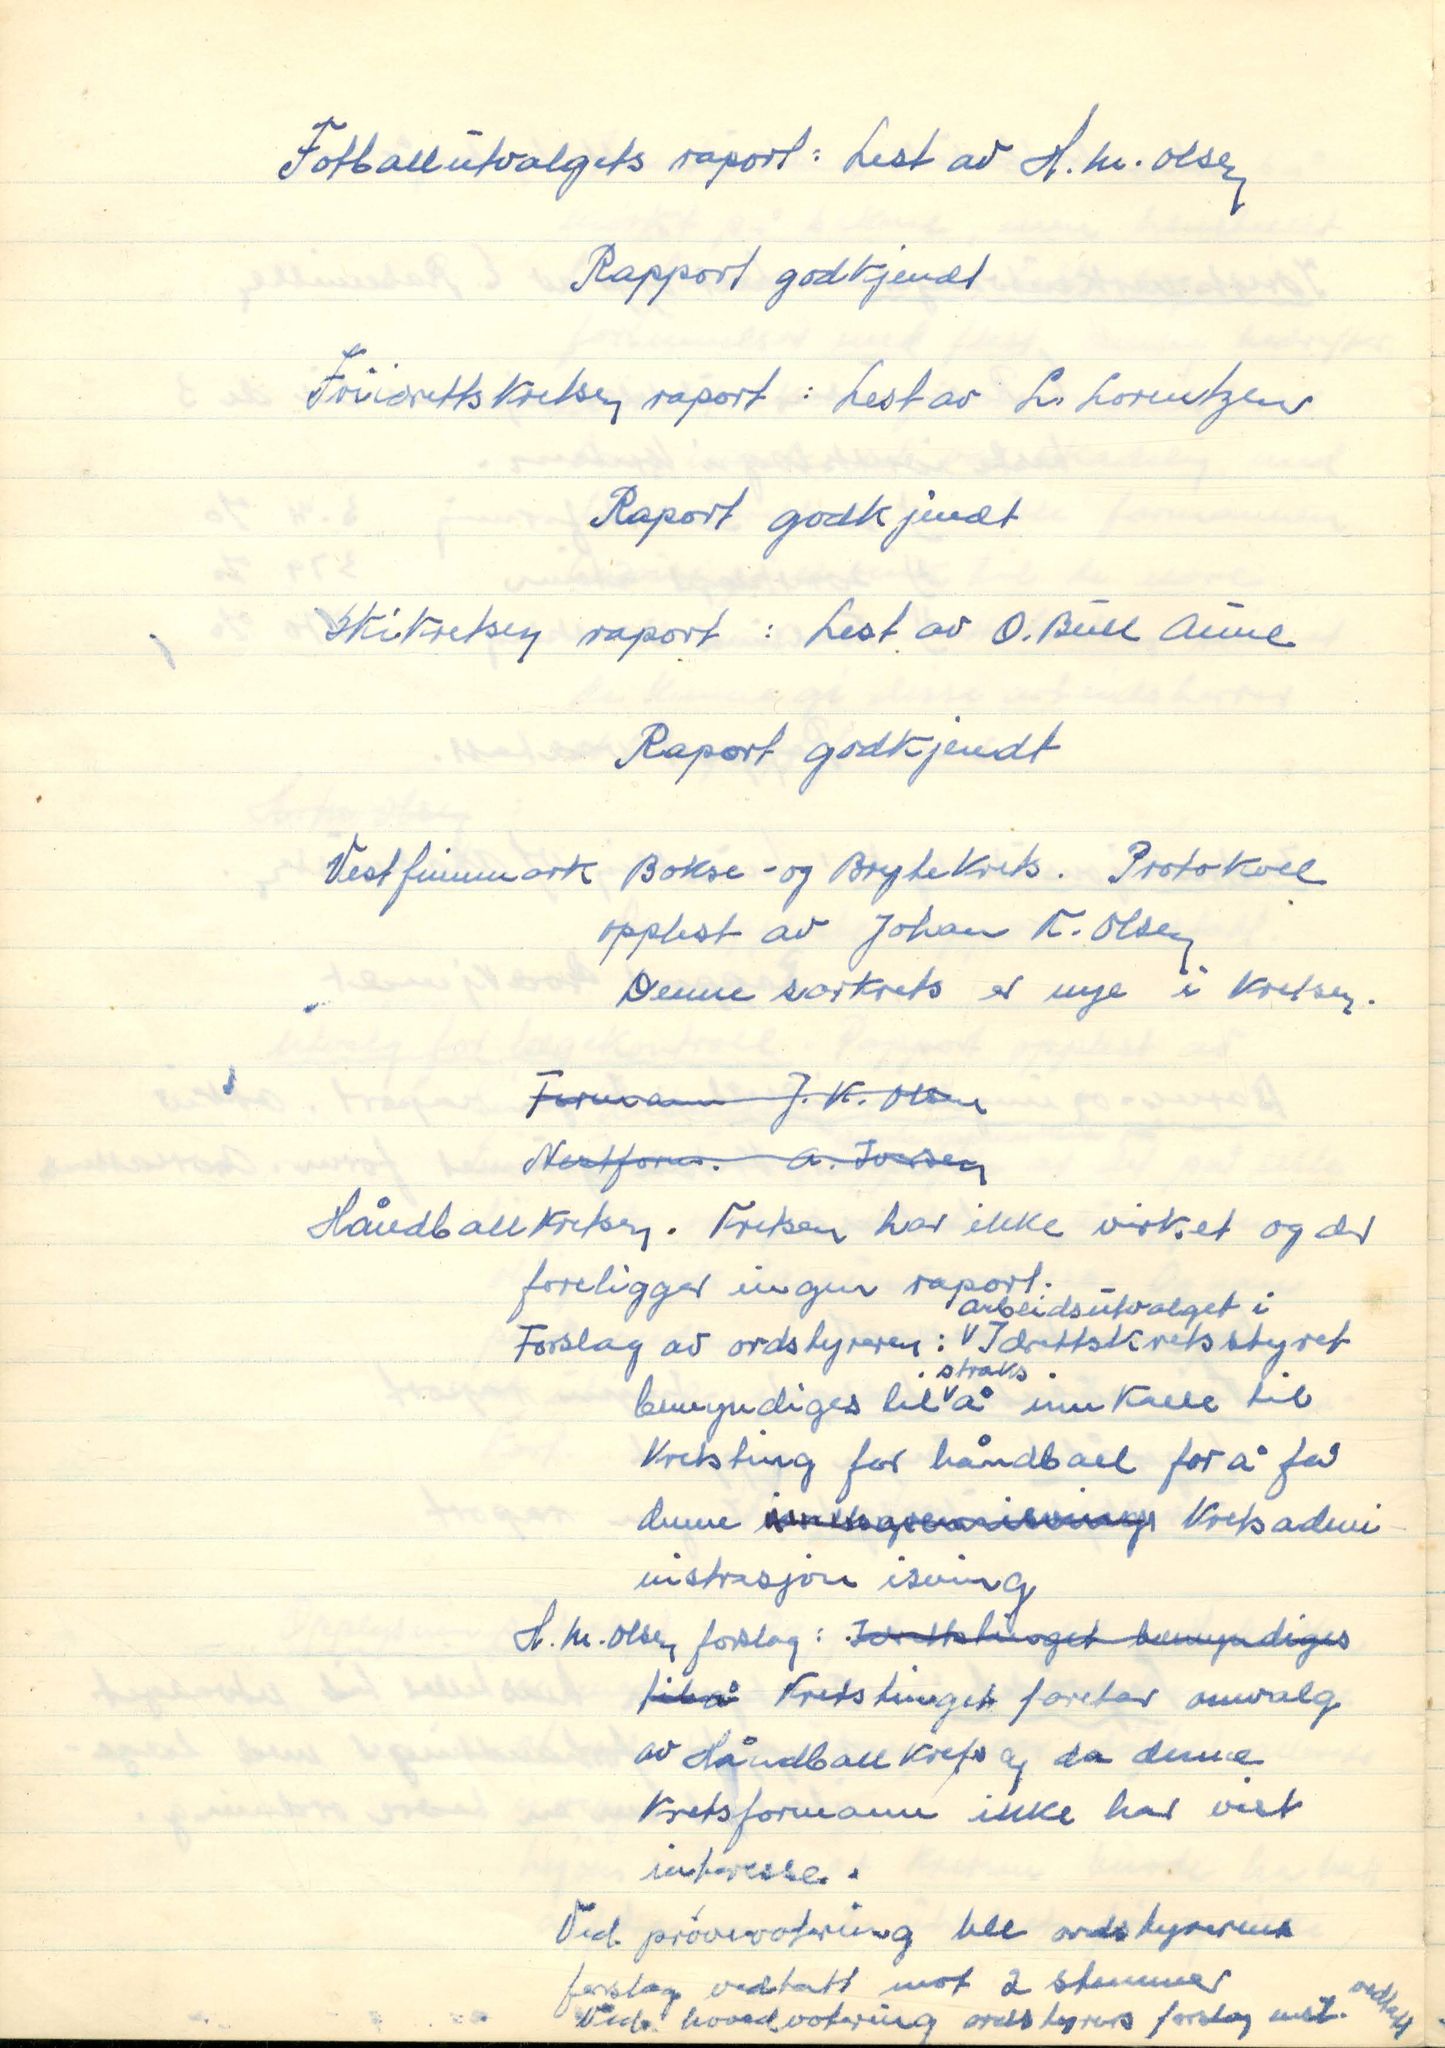 Fotballutvalgets raport: Lest av H. M. Olsen
Rapport godkjendt
Friidrettskretsen raport: Lest av L. Lorentzen
Raport godkjendt
Skikretsen raport: Lest av O. Bull Aune
Raport godkjendt
Vestfinnmark Bokse- og Brytekrets. Protokoll
opplest av Johan K. Olsen
Denne særkrets er nye i Kretsen.
Formann J. K. Olsen
Nestform. A. Iversen
Håndballkretsen. Kretsen har ikke virket og der
foreligger ingen raport.
arbeidsutvalget i
Forslag av ordstyreren: Idrettskretsstyret
straks
bemyndiges til å innkalle til
Kretsting for håndball for å få
denne Kretsadmi-
nistrasjon isving
H. M. Olsen forslag: Idrettstinget bemyndiges
til å Kretstinget foretar omvalg
av Håndballkretsen da denne
Kretsformann ikke har vist
interesse.
Ved prøvevotering ble ordstyrerens
forslag vedtatt mot 2 stemmer
Ved hovedvotering ordstyrers forslag vedtatt